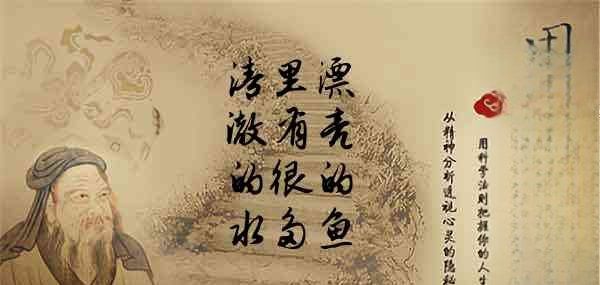 清澈的水
里有很多
漂亮的鱼
从精神分析透视心灵的隐秘
用科学法则把握你的人生